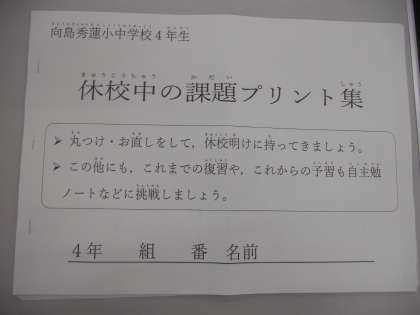 向島秀蓮小中学校４年生
休校中の課題プリント集
➢ 丸つけ・お直しをして、休校明けに持ってきましょう。
➢ この他にも、これまでの復習や、これからの予習も自主勉
ノートなどに挑戦しましょう。
４年　組　番　名前